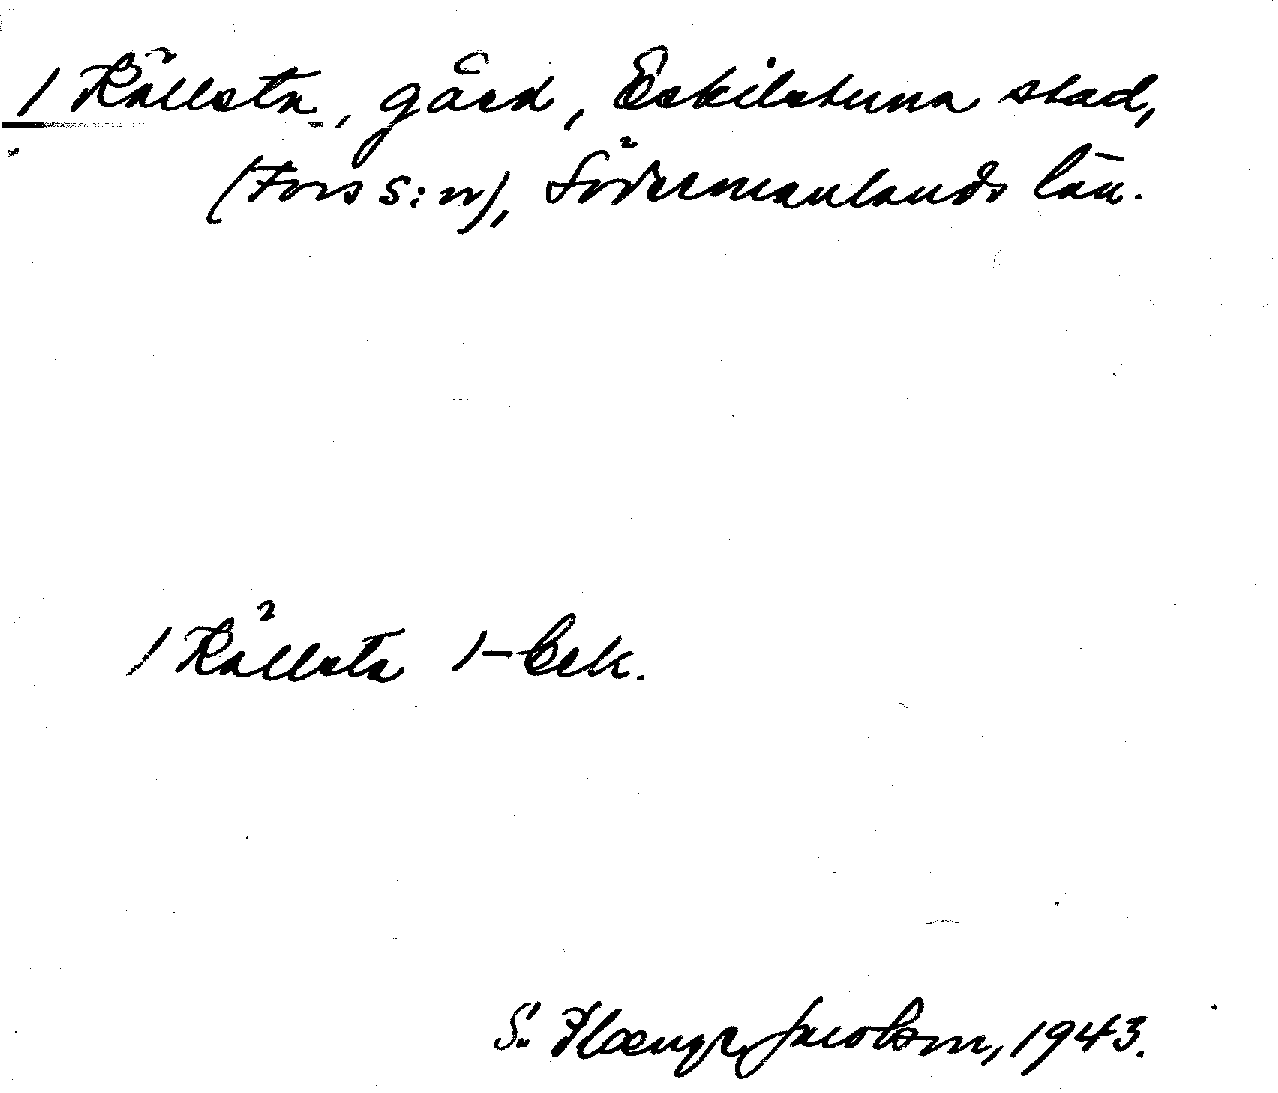 / Källsta, gård, Eskilstuna stad,
(Fors s:n), Södermanlands län.
/ Källsta /-bck.
S. Jacobson, 1943.